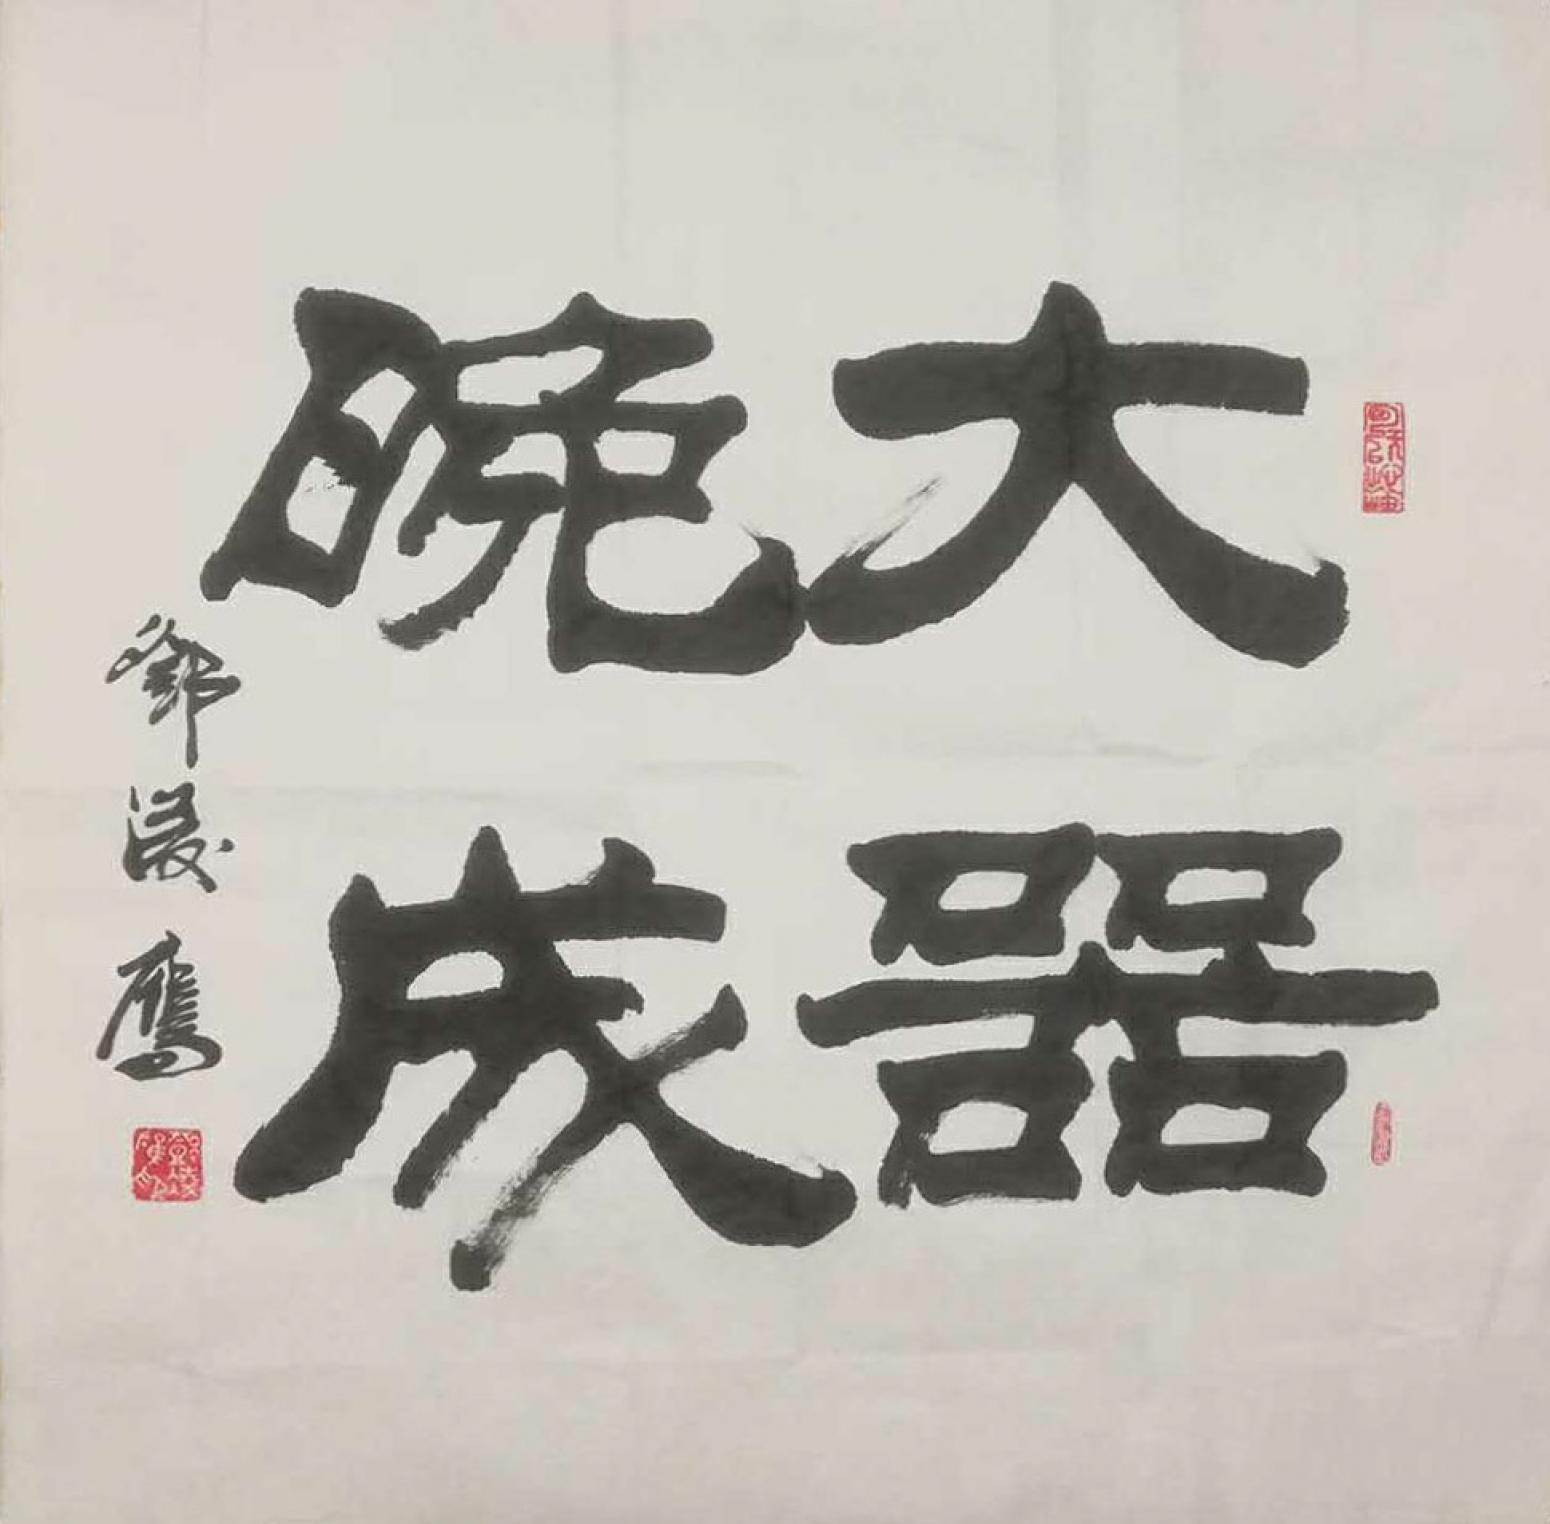 大器
晚成
鄧浚鷹